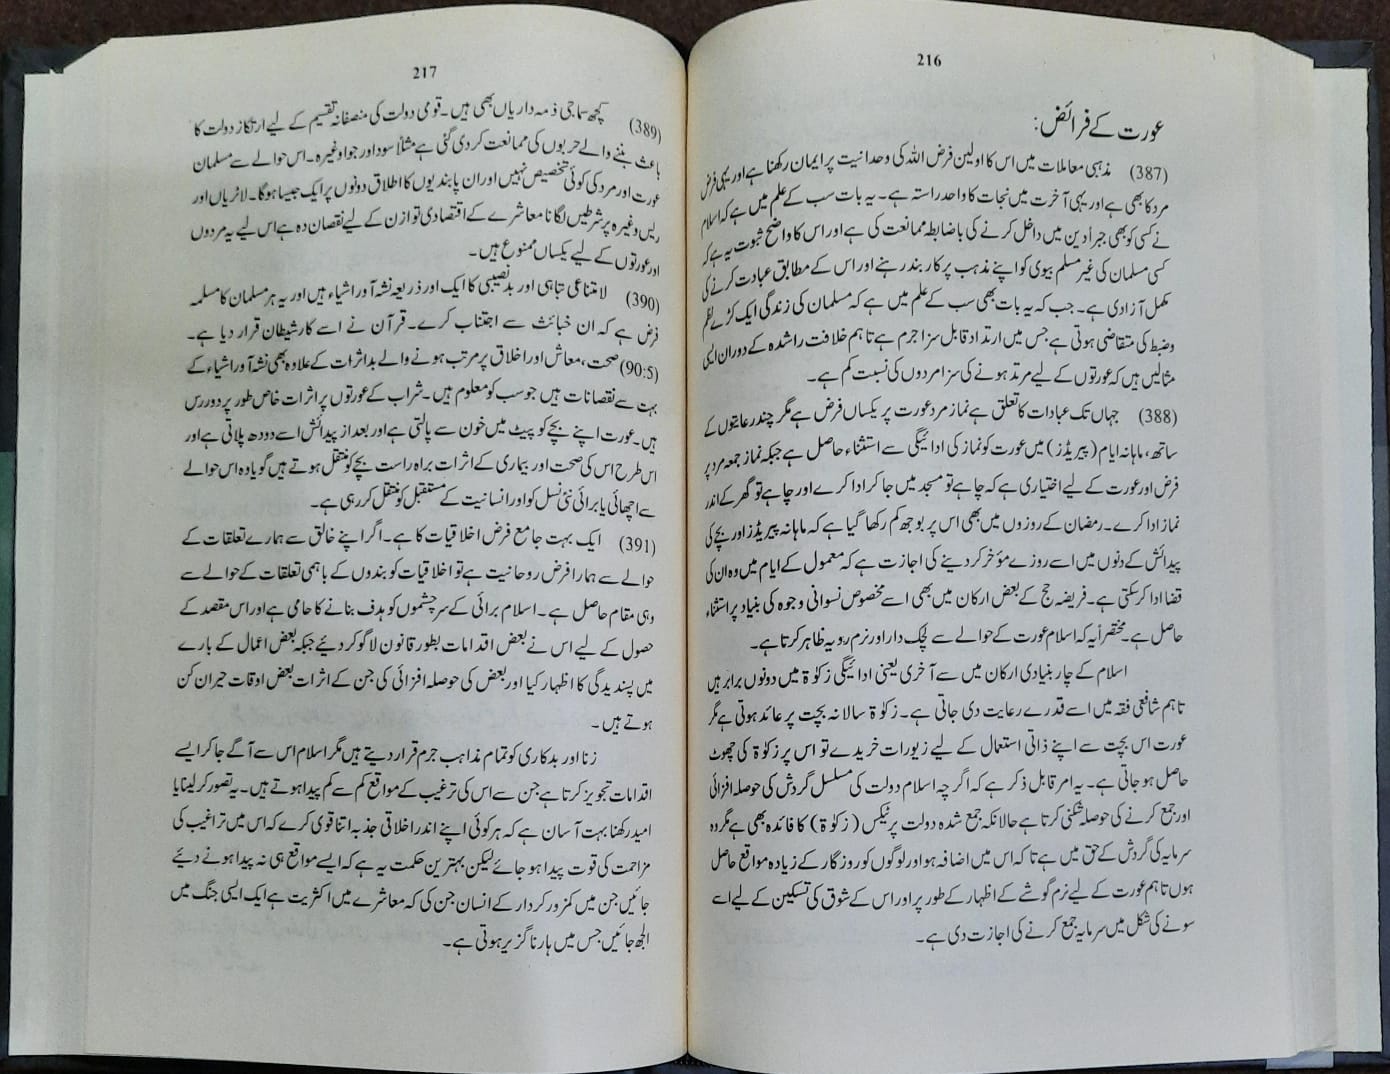 216
عورت کے فرائض:
(387) مذہبی معاملات میں اس کا اولین فرض اللہ کی وحدانیت پر ایمان رکھنا ہے اور یہی فرض
مرد کا بھی ہے اور یہی آخرت میں نجات کا واحد راستہ ہے۔ یہ بات سب کے علم میں ہے کہ اسلام
نے کسی کو بھی جبراً دین میں داخل کرنے کی باضابطہ ممانعت کی ہے اور اس کا واضح ثبوت یہ ہے کہ
کسی مسلمان کی غیر مسلم بیوی کو اپنے مذہب پر کاربند رہنے اور اس کے مطابق عبادت کرنے کی
مکمل آزادی ہے۔ جب کہ یہ بات بھی سب کے علم میں ہے کہ مسلمان کی زندگی ایک کڑے نظم
وضبط کی متقاضی ہوتی ہے جس میں ارتداد قابل سزا جرم ہے تاہم خلافت راشدہ کے دوران ایسی
مثالیں ہیں کہ عورتوں کے لیے مرتد ہونے کی سزا مردوں کی نسبت کم ہے۔
(388) جہاں تک عبادات کا تعلق ہے نماز مرد عورت پر یکساں فرض ہے مگر چند رعایتوں کے
ساتھ، ماہانہ ایام (پیریڈز) میں عورت کو نماز کی ادائیگی سے استثناء حاصل ہے جبکہ نماز جمعہ مرد پر
فرض اور عورت کے لیے اختیاری ہے کہ چاہے تو مسجد میں جا کر ادا کرے اور چاہے تو گھر کے اندر
نماز ادا کرے۔ رمضان کے روزوں میں بھی اس پر بوجھ کم رکھا گیا ہے کہ ماہانہ پیریڈز اور بچے کی
پیدائش کے دنوں میں اسے روزے مؤخر کر دینے کی اجازت ہے کہ معمول کے ایام میں وہ ان کی
قضا ادا کر سکتی ہے۔ فریضہ حج کے بعض ارکان میں بھی اسے مخصوص نسوانی وجوہ کی بنیاد پر استثناء
حاصل ہے۔ مختصراً یہ کہ اسلام عورت کے حوالے سے لچک دار اور نرم رویہ ظاہر کرتا ہے۔
اسلام کے چار بنیادی ارکان میں سے آخری یعنی ادائیگی زکوٰۃ میں دونوں برابر ہیں
تاہم شافعی فقہ میں اسے قدرے رعایت دی جاتی ہے۔ زکوٰۃ سالانہ بچت پر عائد ہوتی ہے مگر
عورت اس بچت سے اپنے ذاتی استعمال کے لیے زیورات خریدے تو اس پر زکوٰۃ کی چھوٹ
حاصل ہو جاتی ہے۔ یہ امر قابل ذکر ہے کہ اگرچہ اسلام دولت کی مسلسل گردش کی حوصلہ افزائی
اور جمع کرنے کی حوصلہ شکنی کرتا ہے حالانکہ جمع شدہ دولت پر ٹیکس (زکوٰۃ) کا فائدہ بھی ہے مگر وہ
سرمایہ کی گردش کے حق میں ہے تاکہ اس میں اضافہ ہو اور لوگوں کو روزگار کے زیادہ مواقع حاصل
ہوں تاہم عورت کے لیے نرم گوشے کے اظہار کے طور پر اور اس کے شوق کی تسکین کے لیے اسے
سونے کی شکل میں سرمایہ جمع کرنے کی اجازت دی ہے۔
217
(389) کچھ سماجی ذمہ داریاں بھی ہیں۔ قومی دولت کی منصفانہ تقسیم کے لیے ارتکاز دولت کا
باعث بننے والے حربوں کی ممانعت کر دی گئی ہے مثلاً سود اور جوا وغیرہ۔ اس حوالے سے مسلمان
عورت اور مرد کی کوئی تخصیص نہیں اور ان پابندیوں کا اطلاق دونوں پر ایک جیسا ہوگا۔ لاٹریاں اور
ریس وغیرہ پر شرطیں لگانا معاشرے کے اقتصادی توازن کے لیے نقصان دہ ہے اس لیے یہ مردوں
اور عورتوں کے لیے یکساں ممنوع ہیں۔
(390) لامتناعی تباہی اور بدنصیبی کا ایک اور ذریعہ نشہ آور اشیاء ہیں اور یہ ہر مسلمان کا مسلمہ
فرض ہے کہ ان خبائث سے اجتناب کرے۔ قرآن نے اسے کار شیطان قرار دیا ہے۔
(90:5) صحت، معاش اور اخلاق پر مرتب ہونے والے بداثرات کے علاوہ بھی نشہ آور اشیاء کے
بہت سے نقصانات ہیں جو سب کو معلوم ہیں۔ شراب کے عورتوں پر اثرات خاص طور پر دور رس
ہیں۔ عورت اپنے بچے کو پیٹ میں خون سے پالتی ہے اور بعد از پیدائش اسے دودھ پلاتی ہے اور
اس طرح اس کی صحت اور بیماری کے اثرات براہ راست بچے کو منتقل ہوتے ہیں گویا وہ اس حوالے
سے اچھائی یا برائی نئی نسل کو اور انسانیت کے مستقبل کو منتقل کر رہی ہے۔
(391) ایک بہت جامع فرض اخلاقیات کا ہے۔ اگر اپنے خالق سے ہمارے تعلقات کے
حوالے سے ہمارا فرض روحانیت ہے تو اخلاقیات کو بندوں کے باہمی تعلقات کے حوالے سے
وہی مقام حاصل ہے۔ اسلام برائی کے سرچشموں کو ہدف بنانے کا حامی ہے اور اس مقصد کے
حصول کے لیے اس نے بعض اقدامات بطور قانون لاگو کر دیئے جبکہ بعض اعمال کے بارے
میں پسندیدگی کا اظہار کیا اور بعض کی حوصلہ افزائی کی جن کے اثرات بعض اوقات حیران کن
ہوتے ہیں۔
زنا اور بدکاری کو تمام مذاہب جرم قرار دیتے ہیں مگر اسلام اس سے آگے جا کر ایسے
اقدامات تجویز کرتا ہے جن سے اس کی ترغیب کے مواقع کم سے کم پیدا ہوتے ہیں۔ یہ تصور کر لینا یا
امید رکھنا بہت آسان ہے کہ ہر کوئی اپنے اندر اخلاقی جذبہ اتنا قوی کرے کہ اس میں تراغیب کی
مزاحمت کی قوت پیدا ہو جائے لیکن بہترین حکمت یہ ہے کہ ایسے مواقع ہی نہ پیدا ہونے دیئے
جائیں جن میں کمزور کردار کے انسان جن کی کہ معاشرے میں اکثریت ہے ایک ایسی جنگ میں
الجھ جائیں جس میں ہارنا گزیر ہوتی ہے۔